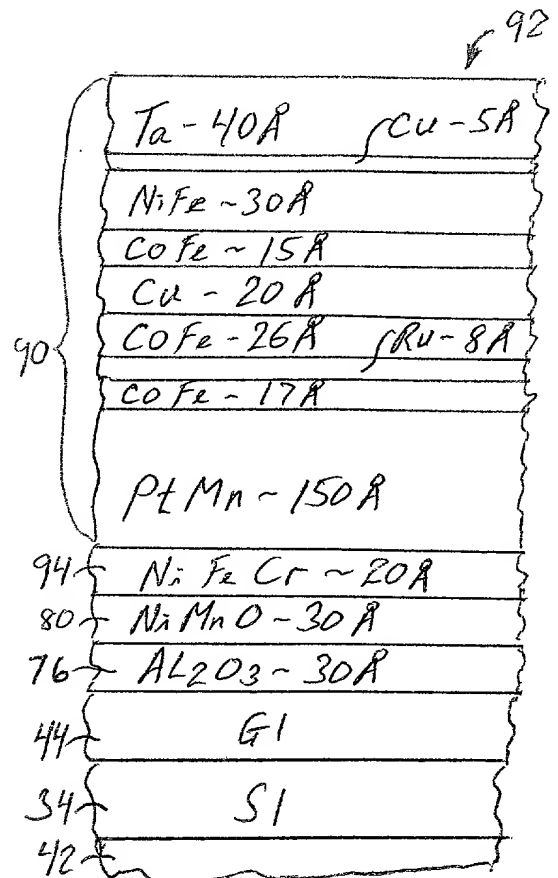 92
Ta-40Å Cu-5Å
NiFe~30Å
CoFe~15Å
Cu-20Å
90 CoFe-26Å Ru-8Å
CoFe-17Å
PtMn~150Å
94 NiFeCr~20Å
80 NiMnO-30Å
76 AL2O3~30Å
44 G1
34 S1
42